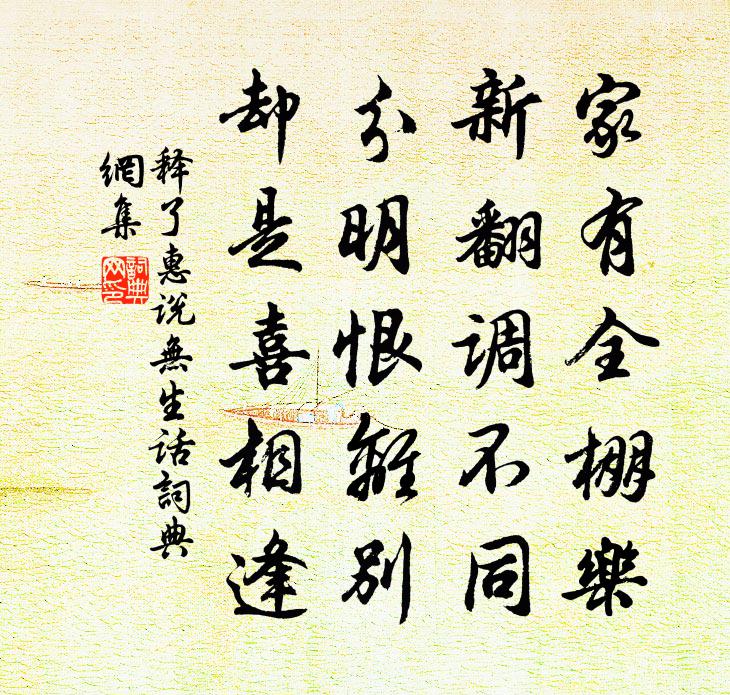 家有全棚樂
新翻调不同
分明恨離别
却是喜相逢
释了惠说無生话詞典
網集
詞典
网印